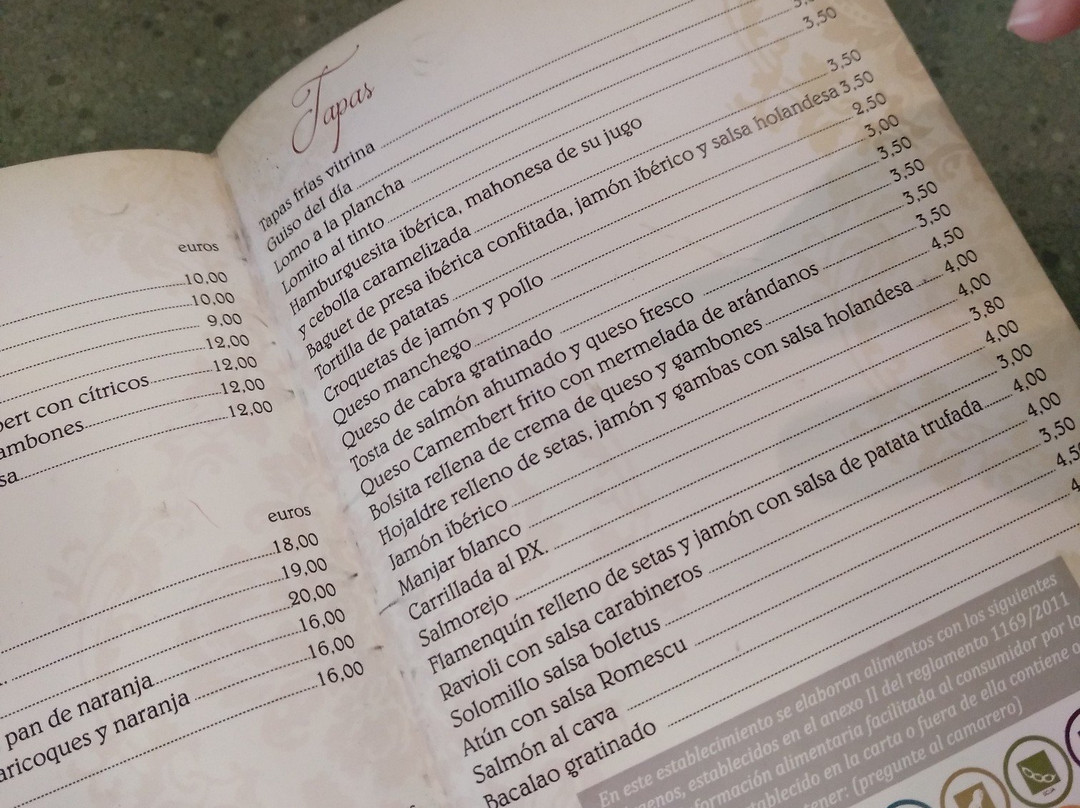 euros
10,00
10,00
9,00
12,00
12,00
bert con cítricos 12,00
ambones 12,00
sa
euros
18,00
19,00
20,00
16,00
16,00
pan de naranja 16,00
aricoques y naranja
Tapas
Tapas frías vitrina
Guiso del día
Lomo a la plancha
Lomito al tinto 3,50
Hamburguesita ibérica, mahonesa de su jugo
y cebolla caramelizada 3,50
Baguet de presa ibérica confitada, jamón ibérico y salsa holandesa 3,50
Tortilla de patatas 2,50
Croquetas de jamón y pollo 3,00
Queso manchego 3,50
Queso de cabra gratinado 3,50
Tosta de salmón ahumado y queso fresco 3,50
Queso Camembert frito con mermelada de arándanos 3,50
Bolsita rellena de crema de queso y gambones 4,50
Hojaldre relleno de setas, jamón y gambas con salsa holandesa 4,00
Jamón ibérico 4,00
Manjar blanco 3,80
Carrillada al P.X. 4,00
Salmorejo 3,00
Flamenquín relleno de setas y jamón con salsa de patata trufada 4,00
Ravioli con salsa carabineros 4,00
Solomillo salsa boletus 3,50
Atún con salsa Romescu 4,5
Salmón al cava 4,
Bacalao gratinado
En este establecimiento se elaboran alimentos con los siguientes
genos, establecidos en el anexo II del reglamento 1169/2011
formación alimentaria facilitada al consumidor por lo
stablecido en la carta o fuera de ella contiene o
tener: (pregunte al camarero)